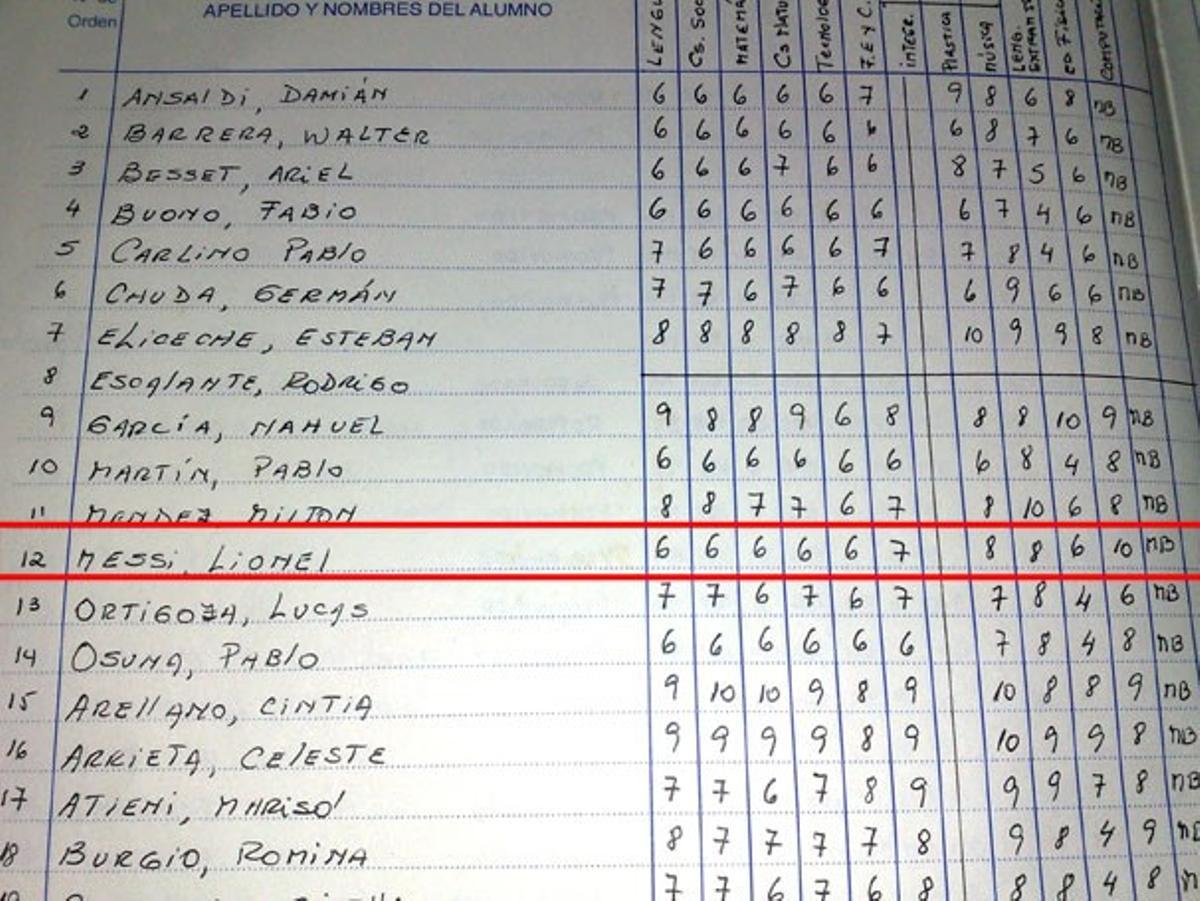 Orden APELLIDO Y NOMBRES DEL ALUMNO LENGU Cs. Soc MATEMÁ Cs NATU TECNOLOG F.E Y C. INTEGR. PLASTICA MÚSICA LENG. EXTRANJ ED FISIC COMPUTACI
1 ANSALDI, DAMIÁN 6 6 6 6 6 7 9 8 6 8 MB
2 BARRERA, WALTER 6 6 6 6 6 6 6 8 7 6 MB
3 BESSET, ARIEL 6 6 6 7 6 6 8 7 5 6 MB
4 BUONO, FABIO 6 6 6 6 6 6 6 7 4 6 MB
5 CARLINO PABLO 7 6 6 6 6 7 7 8 4 6 MB
6 CHUDA, GERMÁN 7 7 6 7 6 6 6 9 6 6 MB
7 ELICECHE, ESTEBAN 8 8 8 8 8 7 10 9 9 8 MB
8 ESCALANTE, RODRIGO
9 GARCÍA, NAHUEL 9 8 8 9 6 8 8 8 10 9 MB
10 MARTÍN, PABLO 6 6 6 6 6 6 6 8 4 8 MB
11 MENDEZ MILTON 8 8 7 7 6 7 8 10 6 8 MB
12 MESSI, LIONEL 6 6 6 6 6 7 8 8 6 10 MB
13 ORTIGOZA, LUCAS 7 7 6 7 6 7 7 8 4 6 MB
14 OSUNA, PABLO 6 6 6 6 6 6 7 8 4 8 MB
15 ARELLANO, CINTIA 9 10 10 9 8 9 10 8 8 9 MB
16 ARRIETA, CELESTE 9 9 9 9 8 9 10 9 9 8 MB
17 ATIENI, MARISOL 7 7 6 7 8 9 9 9 7 8 MB
18 BURGIO, ROMINA 8 7 7 7 7 8 9 8 4 9 MB
7 7 6 7 6 8 8 8 4 8